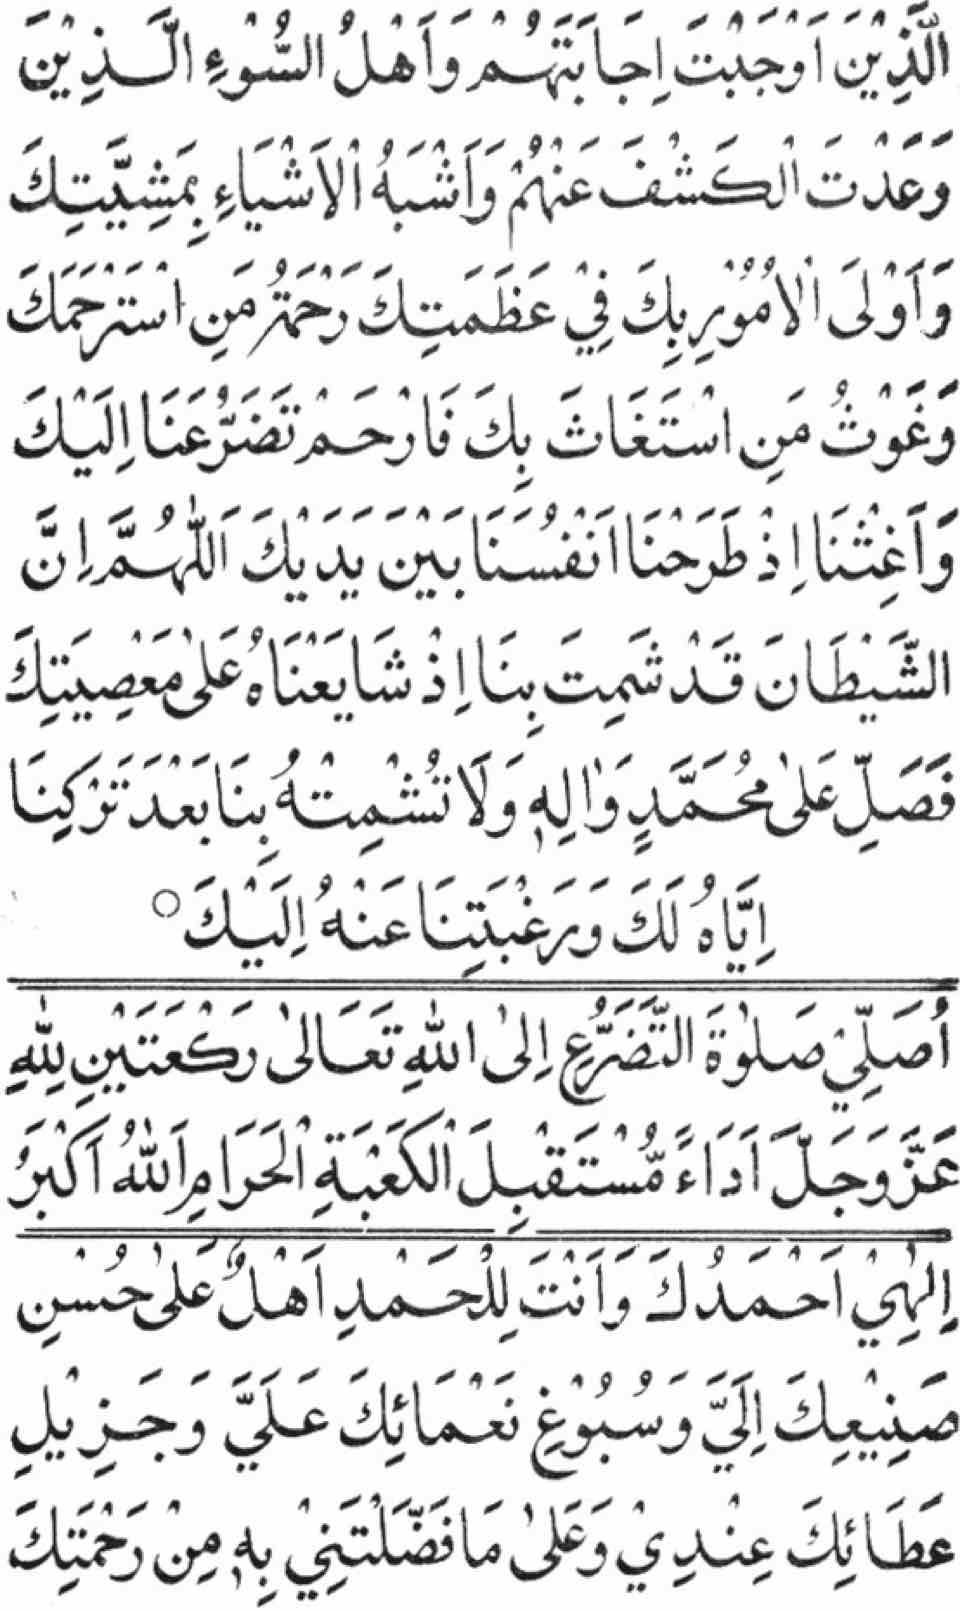 الَّذِيْنَ اَوْجَبْتَ اِجَابَتَهُمْ وَاَهْلُ السُّوْءِ الَّذِيْنَ
وَعَدْتَ الْكَشْفَ عَنْهُمْ وَاَشْبَهُ الْاَشْيَاءِ بِمَشِيَّتِكَ
وَاَوْلَى الْاُمُوْرِ بِكَ فِيْ عَظَمَتِكَ رَحْمَةُ مَنِ اسْتَرْحَمَكَ
وَغَوْثُ مَنِ اسْتَغَاثَ بِكَ فَارْحَمْ تَضَرُّعَنَا اِلَيْكَ
وَاَغِثْنَا اِذْ طَرَحْنَا اَنْفُسَنَا بَيْنَ يَدَيْكَ اَللّٰهُمَّ اِنَّ
الشَّيْطَانَ قَدْ شَمِتَ بِنَا اِذْ شَايَعْنَاهُ عَلٰى مَعْصِيَتِكَ
فَصَلِّ عَلٰى مُحَمَّدٍ وَاٰلِهٖ وَلَا تُشْمِتْهُ بِنَا بَعْدَ تَرْكِنَا
اِيَّاهُ لَكَ وَرَغْبَتِنَا عَنْهُ اِلَيْكَ ○
اُصَلِّيْ صَلٰوةَ التَّضَرُّعِ اِلَى اللّٰهِ تَعَالٰى رَكْعَتَيْنِ لِلّٰهِ
عَزَّ وَجَلَّ اَدَاءً مُّسْتَقْبِلَ الْكَعْبَةِ الْحَرَامِ اَللّٰهُ اَكْبَرُ
اِلٰهِيْ اَحْمَدُكَ وَاَنْتَ لِلْحَمْدِ اَهْلٌ عَلٰى حُسْنِ
صَنِيْعِكَ اِلَيَّ وَسُبُوْغِ نَعْمَائِكَ عَلَيَّ وَجَزِيْلِ
عَطَائِكَ عِنْدِيْ وَعَلٰى مَا فَضَّلْتَنِيْ بِهٖ مِنْ رَحْمَتِكَ